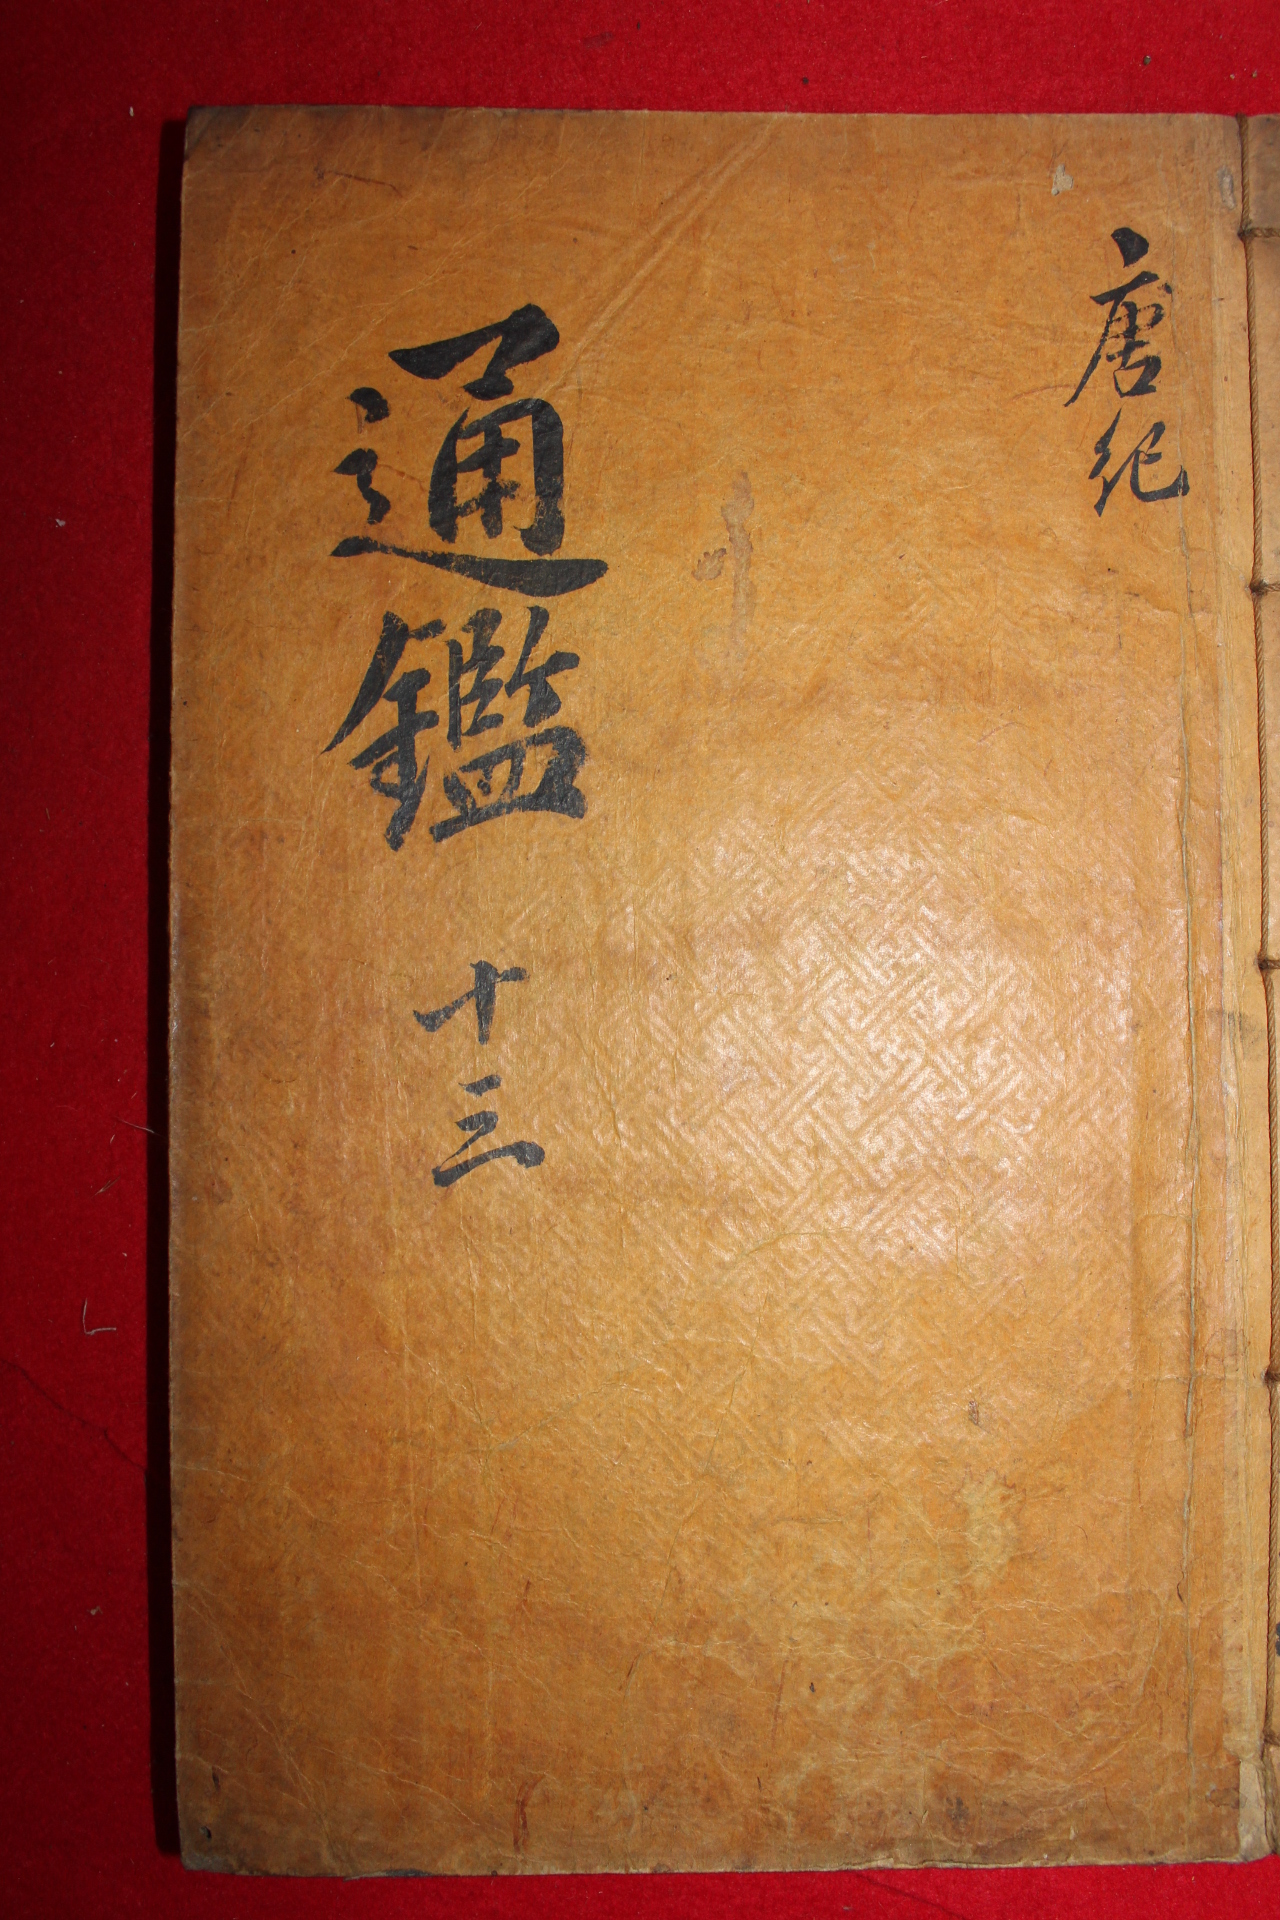 唐紀
通鑑 十三